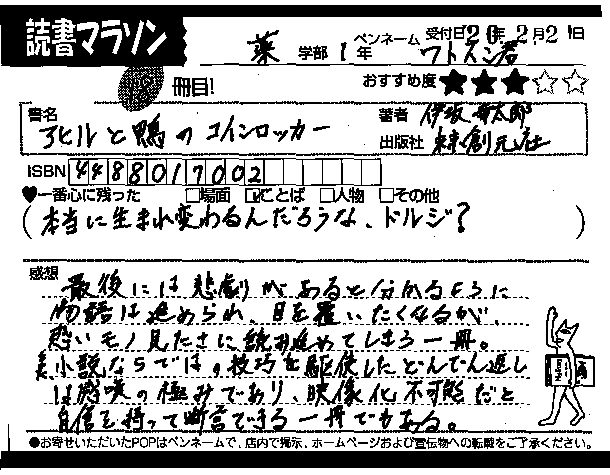 読書マラソン
薬 学部 1年 ペンネーム ワトスン君 受付日 20年 2月 21日
冊目! おすすめ度 ★★★☆☆
書名 アヒルと鴨のコインロッカー
著者 伊坂幸太郎
出版社 東京創元社
ISBN 4488017002
♥一番心に残った □場面 ☑ことば □人物 □その他
(本当に生まれ変わるんだろうな、ドルジ?)
感想 最後には悲劇があると分かるように
物語は進められ、目を覆いたくなるが、
怖いモノ見たさに読み進めてしまう一冊。
小説ならではの技巧を駆使したどんでん返し
は圧巻の極みであり、映像化不可能だと
自信を持って断言できる一冊でもある。
●お寄せいただいたPOPはペンネームで、店内で掲示、ホームページおよび宣伝物への転載をご了承ください。